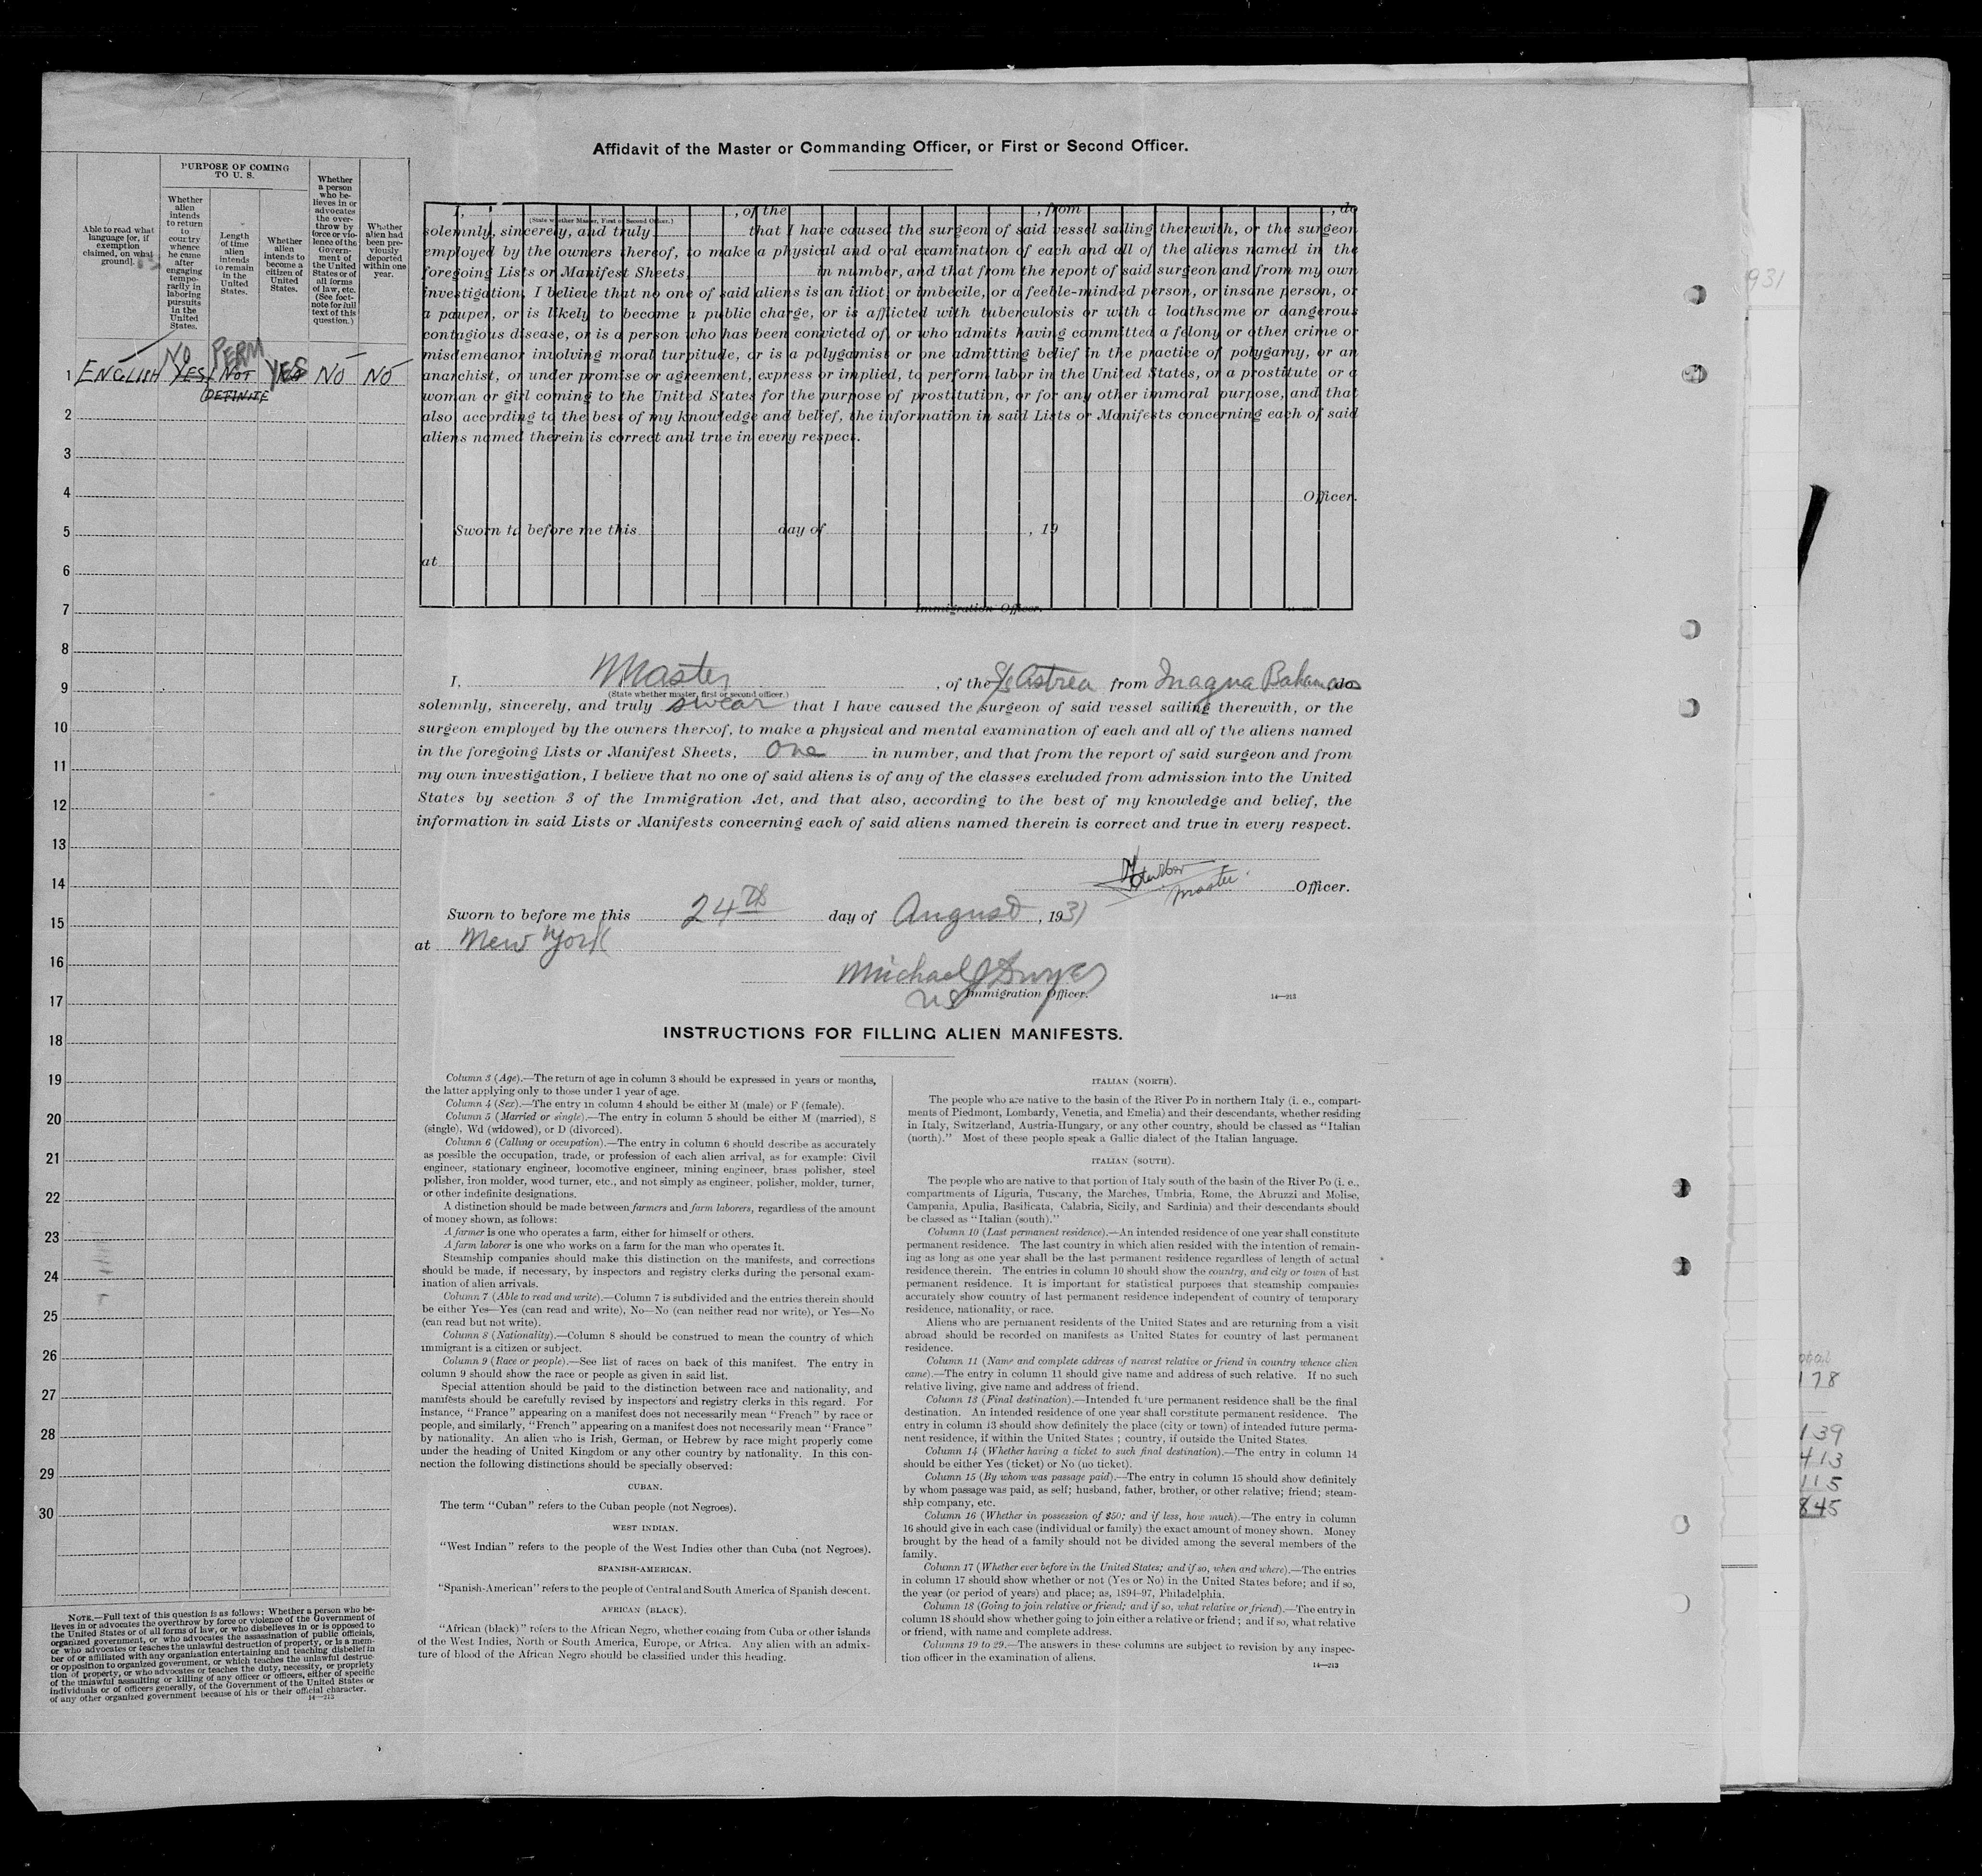 Affidavit of the Master or Commanding Officer, or First or Second Officer.
PURPOSE OF COMING
TO U. S.
Able to read what
language [or, if
exemption
claimed, on what
ground].
Whether
alien
intends
to return
to
country
whence
he came
after
engaging
tempo-
rarily in
laboring
pursuits
in the
United
States.
Length
of time
alien
intends
to remain
in the
United
States.
Whether
alien
intends to
become a
citizen of
United
States.
Whether
a person
who be-
lieves in or
advocates
the over-
throw by
force or vio-
lence of the
Govern-
ment of
the United
States or of
all forms
of law, etc.
(See foot-
note for full
text of this
question.)
Whether
alien had
been pre-
viously
deported
within one
year.
NO PERM
1 ENGLISH YES NOT YES NO NO
DEFINITE
2
3
4
5
6
7
8
9
10
11
12
13
14
15
16
17
18
19
20
21
22
23
24
25
26
27
28
29
30
NOTE.—Full text of this question is as follows: Whether a person who be-
lieves in or advocates the overthrow by force or violence of the Government of
the United States or of all forms of law, or who disbelieves in or is opposed to
organized government, or who advocates the assassination of public officials,
or who advocates or teaches the unlawful destruction of property, or is a mem-
ber of or affiliated with any organization entertaining and teaching disbelief in
or opposition to organized government, or which teaches the unlawful destruc-
tion of property, or who advocates or teaches the duty, necessity, or propriety
of the unlawful assaulting or killing of any officer or officers, either of specific
individuals or of officers generally, of the Government of the United States or
of any other organized government because of his or their official character.
14—213
I, , of the , from , do
(State whether Master, First or Second Officer.)
solemnly, sincerely, and truly that I have caused the surgeon of said vessel sailing therewith, or the surgeon
employed by the owners thereof, to make a physical and oral examination of each and all of the aliens named in the
foregoing Lists or Manifest Sheets, in number, and that from the report of said surgeon and from my own
investigation, I believe that no one of said aliens is an idiot, or imbecile, or a feeble-minded person, or insane person, or
a pauper, or is likely to become a public charge, or is afflicted with tuberculosis or with a loathsome or dangerous
contagious disease, or is a person who has been convicted of, or who admits having committed a felony or other crime or
misdemeanor involving moral turpitude, or is a polygamist or one admitting belief in the practice of polygamy, or an
anarchist, or under promise or agreement, express or implied, to perform labor in the United States, or a prostitute, or a
woman or girl coming to the United States for the purpose of prostitution, or for any other immoral purpose, and that
also, according to the best of my knowledge and belief, the information in said Lists or Manifests concerning each of said
aliens named therein is correct and true in every respect.
Officer.
Sworn to before me this day of , 19
at
Immigration Officer.
I, Master , of the S/S Astrea from Inagua Bahamas do
(State whether master, first or second officer.)
solemnly, sincerely, and truly swear that I have caused the surgeon of said vessel sailing therewith, or the
surgeon employed by the owners thereof, to make a physical and mental examination of each and all of the aliens named
in the foregoing Lists or Manifest Sheets, One in number, and that from the report of said surgeon and from
my own investigation, I believe that no one of said aliens is of any of the classes excluded from admission into the United
States by section 3 of the Immigration Act, and that also, according to the best of my knowledge and belief, the
information in said Lists or Manifests concerning each of said aliens named therein is correct and true in every respect.
Master Officer.
Sworn to before me this 24th day of August , 1931
at New York
Michael J Dwyer
US Immigration Officer.
14—213
INSTRUCTIONS FOR FILLING ALIEN MANIFESTS.
Column 3 (Age).—The return of age in column 3 should be expressed in years or months,
the latter applying only to those under 1 year of age.
Column 4 (Sex).—The entry in column 4 should be either M (male) or F (female).
Column 5 (Married or single).—The entry in column 5 should be either M (married), S
(single), Wd (widowed), or D (divorced).
Column 6 (Calling or occupation).—The entry in column 6 should describe as accurately
as possible the occupation, trade, or profession of each alien arrival, as for example: Civil
engineer, stationary engineer, locomotive engineer, mining engineer, brass polisher, steel
polisher, iron molder, wood turner, etc., and not simply as engineer, polisher, molder, turner,
or other indefinite designations.
A distinction should be made between farmers and farm laborers, regardless of the amount
of money shown, as follows:
A farmer is one who operates a farm, either for himself or others.
A farm laborer is one who works on a farm for the man who operates it.
Steamship companies should make this distinction on the manifests, and corrections
should be made, if necessary, by inspectors and registry clerks during the personal exam-
ination of alien arrivals.
Column 7 (Able to read and write).—Column 7 is subdivided and the entries therein should
be either Yes—Yes (can read and write), No—No (can neither read nor write), or Yes—No
(can read but not write).
Column 8 (Nationality).—Column 8 should be construed to mean the country of which
immigrant is a citizen or subject.
Column 9 (Race or people).—See list of races on back of this manifest. The entry in
column 9 should show the race or people as given in said list.
Special attention should be paid to the distinction between race and nationality, and
manifests should be carefully revised by inspectors and registry clerks in this regard. For
instance, "France" appearing on a manifest does not necessarily mean "French" by race or
people, and similarly, "French" appearing on a manifest does not necessarily mean "France"
by nationality. An alien who is Irish, German, or Hebrew by race might properly come
under the heading of United Kingdom or any other country by nationality. In this con-
nection the following distinctions should be specially observed:
CUBAN.
The term "Cuban" refers to the Cuban people (not Negroes).
WEST INDIAN.
"West Indian" refers to the people of the West Indies other than Cuba (not Negroes).
SPANISH-AMERICAN.
"Spanish-American" refers to the people of Central and South America of Spanish descent.
AFRICAN (BLACK).
"African (black)" refers to the African Negro, whether coming from Cuba or other islands
of the West Indies, North or South America, Europe, or Africa. Any alien with an admix-
ture of blood of the African Negro should be classified under this heading.
ITALIAN (NORTH).
The people who are native to the basin of the River Po in northern Italy (i. e., compart-
ments of Piedmont, Lombardy, Venetia, and Emelia) and their descendants, whether residing
in Italy, Switzerland, Austria-Hungary, or any other country, should be classed as "Italian
(north)." Most of these people speak a Gallic dialect of the Italian language.
ITALIAN (SOUTH).
The people who are native to that portion of Italy south of the basin of the River Po (i. e.,
compartments of Liguria, Tuscany, the Marches, Umbria, Rome, the Abruzzi and Molise,
Campania, Apulia, Basilicata, Calabria, Sicily, and Sardinia) and their descendants should
be classed as "Italian (south)."
Column 10 (Last permanent residence).—An intended residence of one year shall constitute
permanent residence. The last country in which alien resided with the intention of remain-
ing as long as one year shall be the last permanent residence regardless of length of actual
residence therein. The entries in column 10 should show the country, and city or town of last
permanent residence. It is important for statistical purposes that steamship companies
accurately show country of last permanent residence independent of country of temporary
residence, nationality, or race.
Aliens who are permanent residents of the United States and are returning from a visit
abroad should be recorded on manifests as United States for country of last permanent
residence.
Column 11 (Name and complete address of nearest relative or friend in country whence alien
came).—The entry in column 11 should give name and address of such relative. If no such
relative living, give name and address of friend.
Column 13 (Final destination).—Intended future permanent residence shall be the final
destination. An intended residence of one year shall constitute permanent residence. The
entry in column 13 should show definitely the place (city or town) of intended future perma-
nent residence, if within the United States ; country, if outside the United States.
Column 14 (Whether having a ticket to such final destination).—The entry in column 14
should be either Yes (ticket) or No (no ticket).
Column 15 (By whom was passage paid).—The entry in column 15 should show definitely
by whom passage was paid, as self; husband, father, brother, or other relative; friend; steam-
ship company, etc.
Column 16 (Whether in possession of $50; and if less, how much).—The entry in column
16 should give in each case (individual or family) the exact amount of money shown. Money
brought by the head of a family should not be divided among the several members of the
family.
Column 17 (Whether ever before in the United States; and if so, when and where).—The entries
in column 17 should show whether or not (Yes or No) in the United States before; and if so,
the year (or period of years) and place; as, 1894-97, Philadelphia.
Column 18 (Going to join relative or friend; and if so, what relative or friend).—The entry in
column 18 should show whether going to join either a relative or friend ; and if so, what relative
or friend, with name and complete address.
Columns 19 to 29.—The answers in these columns are subject to revision by any inspec-
tion officer in the examination of aliens.
14—213
931
otal
178
139
413
115
845